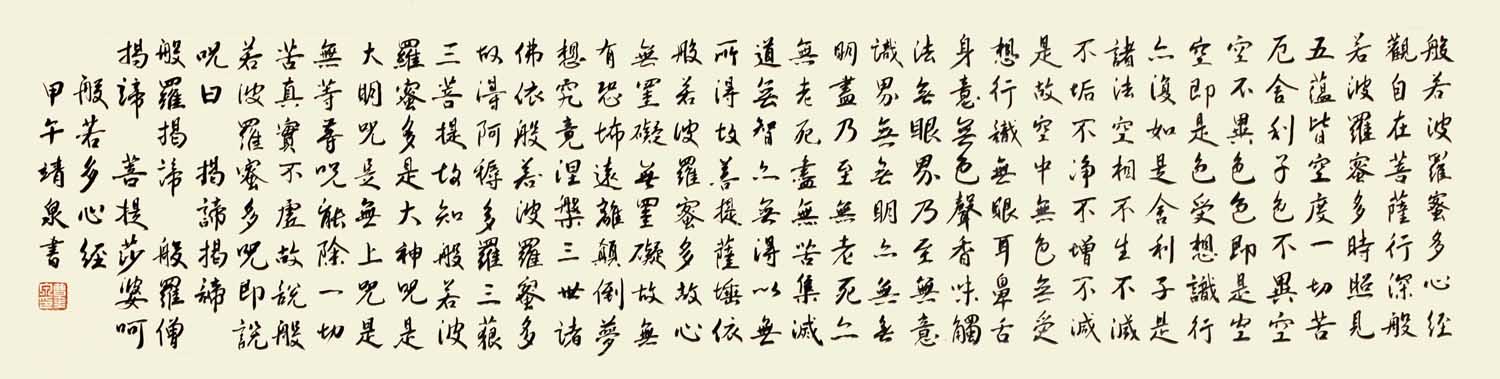 般若波羅蜜多心經
觀自在菩薩行深般
若波羅蜜多時照見
五蘊皆空度一切苦
厄舍利子色不異空
空不異色色即是空
空即是色受想識行
亦復如是舍利子是
諸法空相不生不滅
不垢不净不增不減
是故空中無色無受
想行識無眼耳鼻舌
身意無色聲香味觸
法無眼界乃至無意
識界無無明亦無無
明盡乃至無老死亦
無老死盡無苦集滅
道無智亦無得以無
所得故菩提薩埵依
般若波羅蜜多故心
無罣礙無罣礙故無
有恐怖遠離顛倒夢
想究竟涅槃三世諸
佛依般若波羅蜜多
故得阿耨多羅三藐
三菩提故知般若波
羅蜜多是大神呪是
大明呪是無上呪是
無等等呪能除一切
苦真實不虛故説般
若波羅蜜多呪即説
呪曰 揭諦揭諦
般羅揭諦 般羅僧
揭諦 菩提莎婆呵
般若多心經
甲午靖泉書